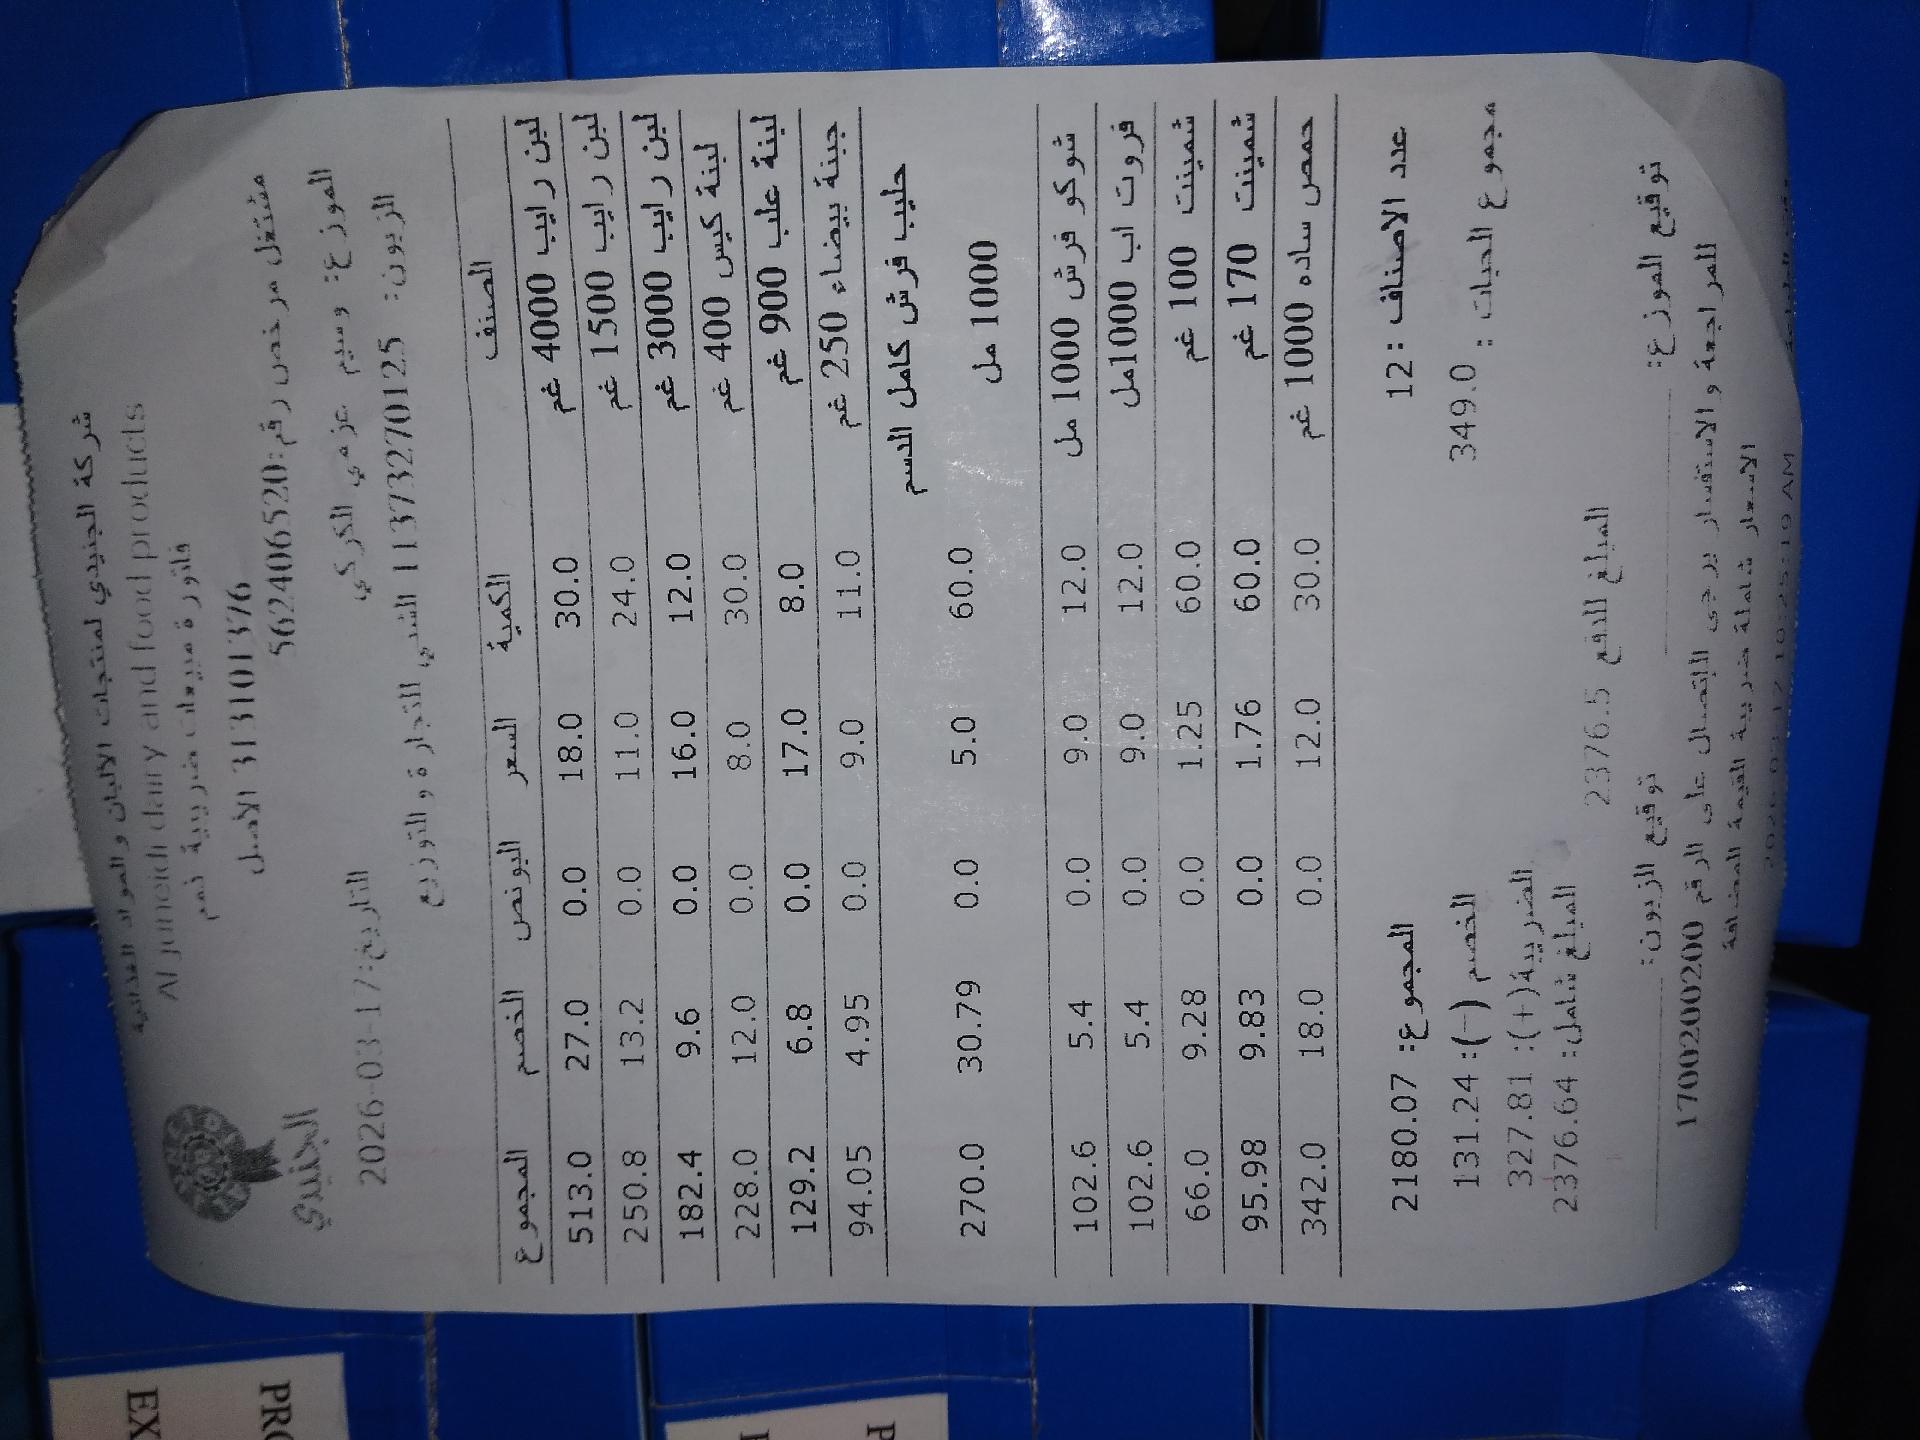 شركة الجنيدي لمنتجات الالبان والمواد الغذائية
Al juneidi dairy and food products
فاتورة مبيعات ضريبية
الجنيدي
3131101376 الاصل
مشتغل مرخص رقم:562406520
الموزع: وسيم عزمي الكركي
التاريخ:2026-03-17
الزبون: 1137327012S الشني للتجارة والتوزيع
الصنف الكمية السعر البونص الخصم المجموع
لبن رايب 4000 غم 30.0 18.0 0.0 27.0 513.0
لبن رايب 1500 غم 24.0 11.0 0.0 13.2 250.8
لبن رايب 3000 غم 12.0 16.0 0.0 9.6 182.4
لبنة كيس 400 غم 30.0 8.0 0.0 12.0 228.0
لبنة علب 900 غم 8.0 17.0 0.0 6.8 129.2
جبنة بيضاء 250 غم 11.0 9.0 0.0 4.95 94.05
حليب فرش كامل الدسم
1000 مل 60.0 5.0 0.0 30.79 270.0
شوكو فرش 1000 مل 12.0 9.0 0.0 5.4 102.6
فروت اب 1000مل 12.0 9.0 0.0 5.4 102.6
شمينت 100 غم 60.0 1.25 0.0 9.28 66.0
شمينت 170 غم 60.0 1.76 0.0 9.83 95.98
حمص ساده 1000 غم 30.0 12.0 0.0 18.0 342.0
عدد الاصناف : 12 المجموع: 2180.07
مجموع الحبات : 349.0 الخصم (-): 131.24
الضريبة(+): 327.81
المبلغ شامل: 2376.64
المبلغ للدفع 2376.5
توقيع الموزع: توقيع الزبون:
للمراجعة والاستفسار يرجى الاتصال على الرقم 1700200200
الاسعار شاملة ضريبة القيمة المضافة
PRO
EX
P